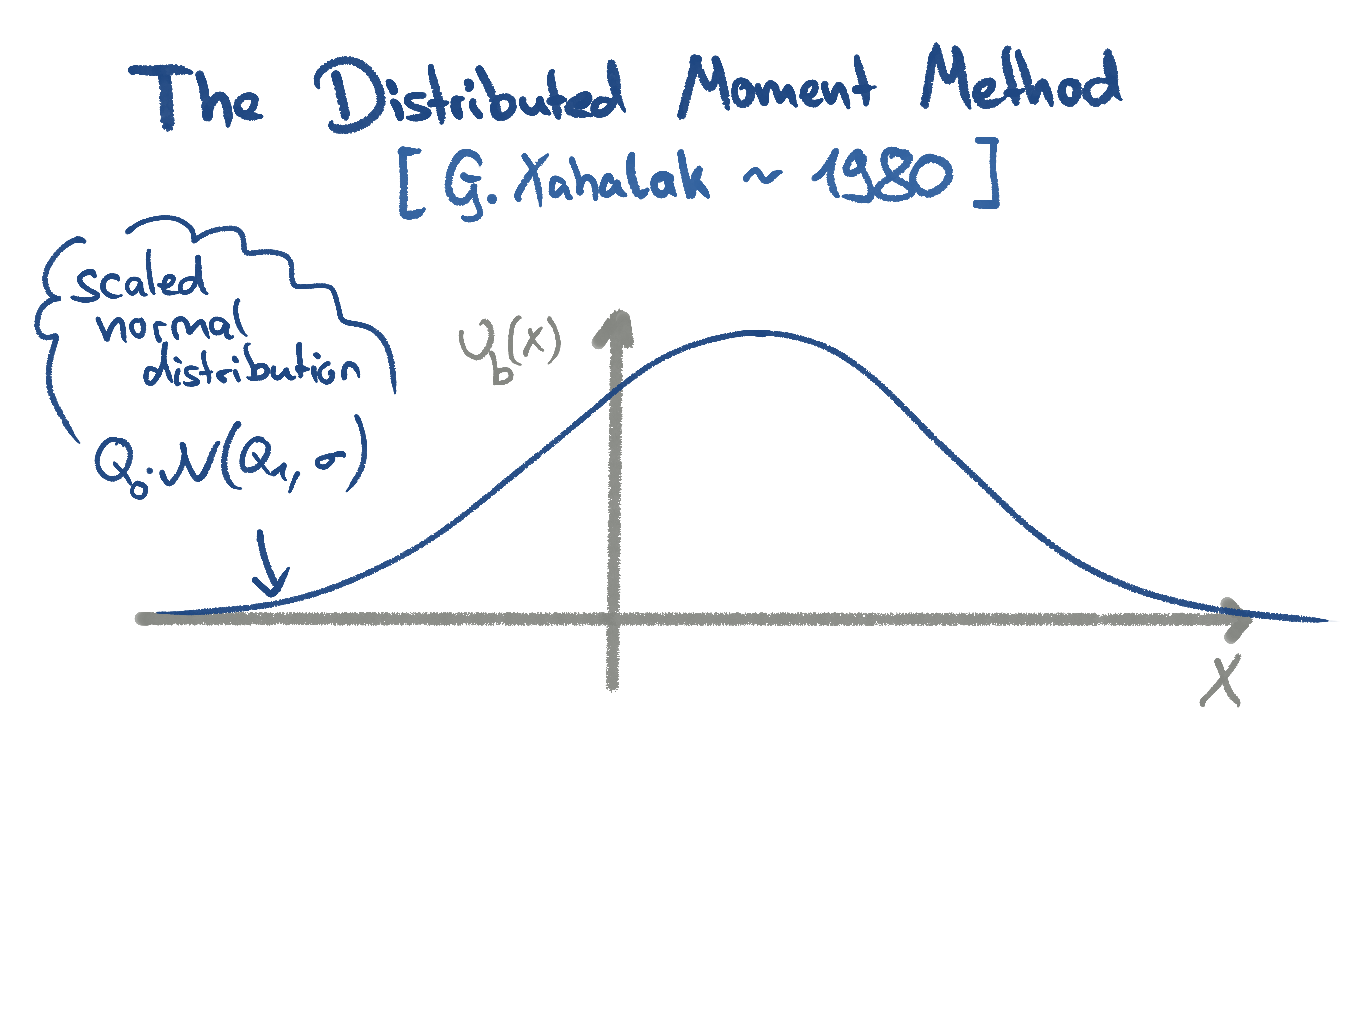 The Distributed Moment Method
[G. Xahalak ~ 1980]
scaled
normal
distribution
Q₀·N(Q₁, σ)
U_b(x)
X